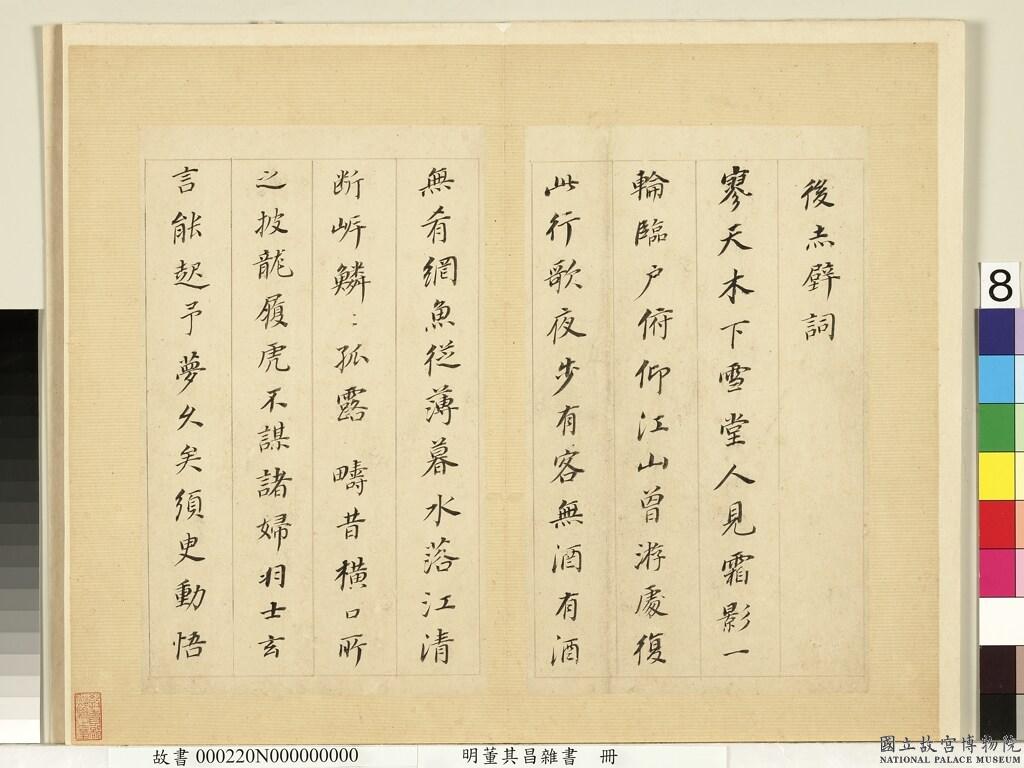 後赤壁詞
寥天木下雪堂人見霜影一
輪臨户俯仰江山曾游處復
此行歌夜步有客無酒有酒
無肴網魚從薄暮水落江清
断岍鱗〻孤露 疇昔横口所
之披龍履虎不謀諸婦羽士玄
言能起予夢久矣須臾動悟
8
故書 000220N000000000 明董其昌雜書 冊
國立故宮博物院
NATIONAL PALACE MUSEUM